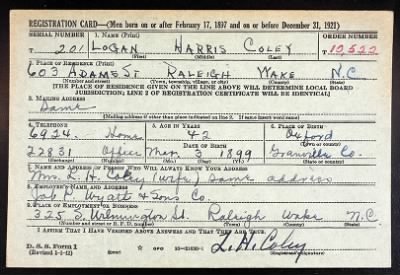 REGISTRATION CARD—(Men born on or after February 17, 1897 and on or before December 31, 1921)
SERIAL NUMBER 1. NAME (Print) ORDER NUMBER
T 201 LOGAN HARRIS COLEY T 10522
(First) (Middle) (Last)
2. PLACE OF RESIDENCE (Print)
603 ADAMS ST RALEIGH WAKE N.C.
(Number and street) (Town, township, village, or city) (County) (State)
[THE PLACE OF RESIDENCE GIVEN ON THE LINE ABOVE WILL DETERMINE LOCAL BOARD
JURISDICTION; LINE 2 OF REGISTRATION CERTIFICATE WILL BE IDENTICAL]
3. MAILING ADDRESS
Same
[Mailing address if other than place indicated on line 2. If same insert word same]
4. TELEPHONE 5. AGE IN YEARS 6. PLACE OF BIRTH
6924 Home 42 Oxford
DATE OF BIRTH
22831 Office Mar. 3 1899 Granville Co.
(Exchange) (Number) (Mo.) (Day) (Yr.) (State or country)
7. NAME AND ADDRESS OF PERSON WHO WILL ALWAYS KNOW YOUR ADDRESS
Mrs. L. H. Coley (wife) same address
8. EMPLOYER'S NAME AND ADDRESS
Job P. Wyatt & Sons Co.
9. PLACE OF EMPLOYMENT OR BUSINESS
325 S. Wilmington St. Raleigh Wake N.C.
(Number and street or R. F. D. number) (Town) (County) (State)
I AFFIRM THAT I HAVE VERIFIED ABOVE ANSWERS AND THAT THEY ARE TRUE.
D. S. S. Form 1
(Revised 1-1-42) GPO L. H. Coley